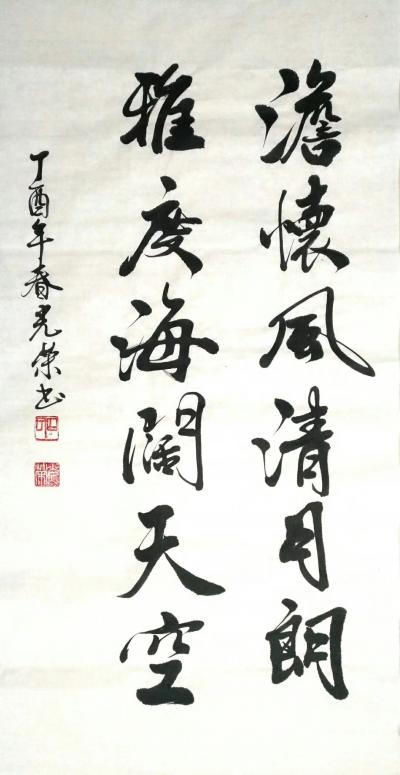 澹懷風清月朗
雅度海闊天空
丁酉年春光榮书